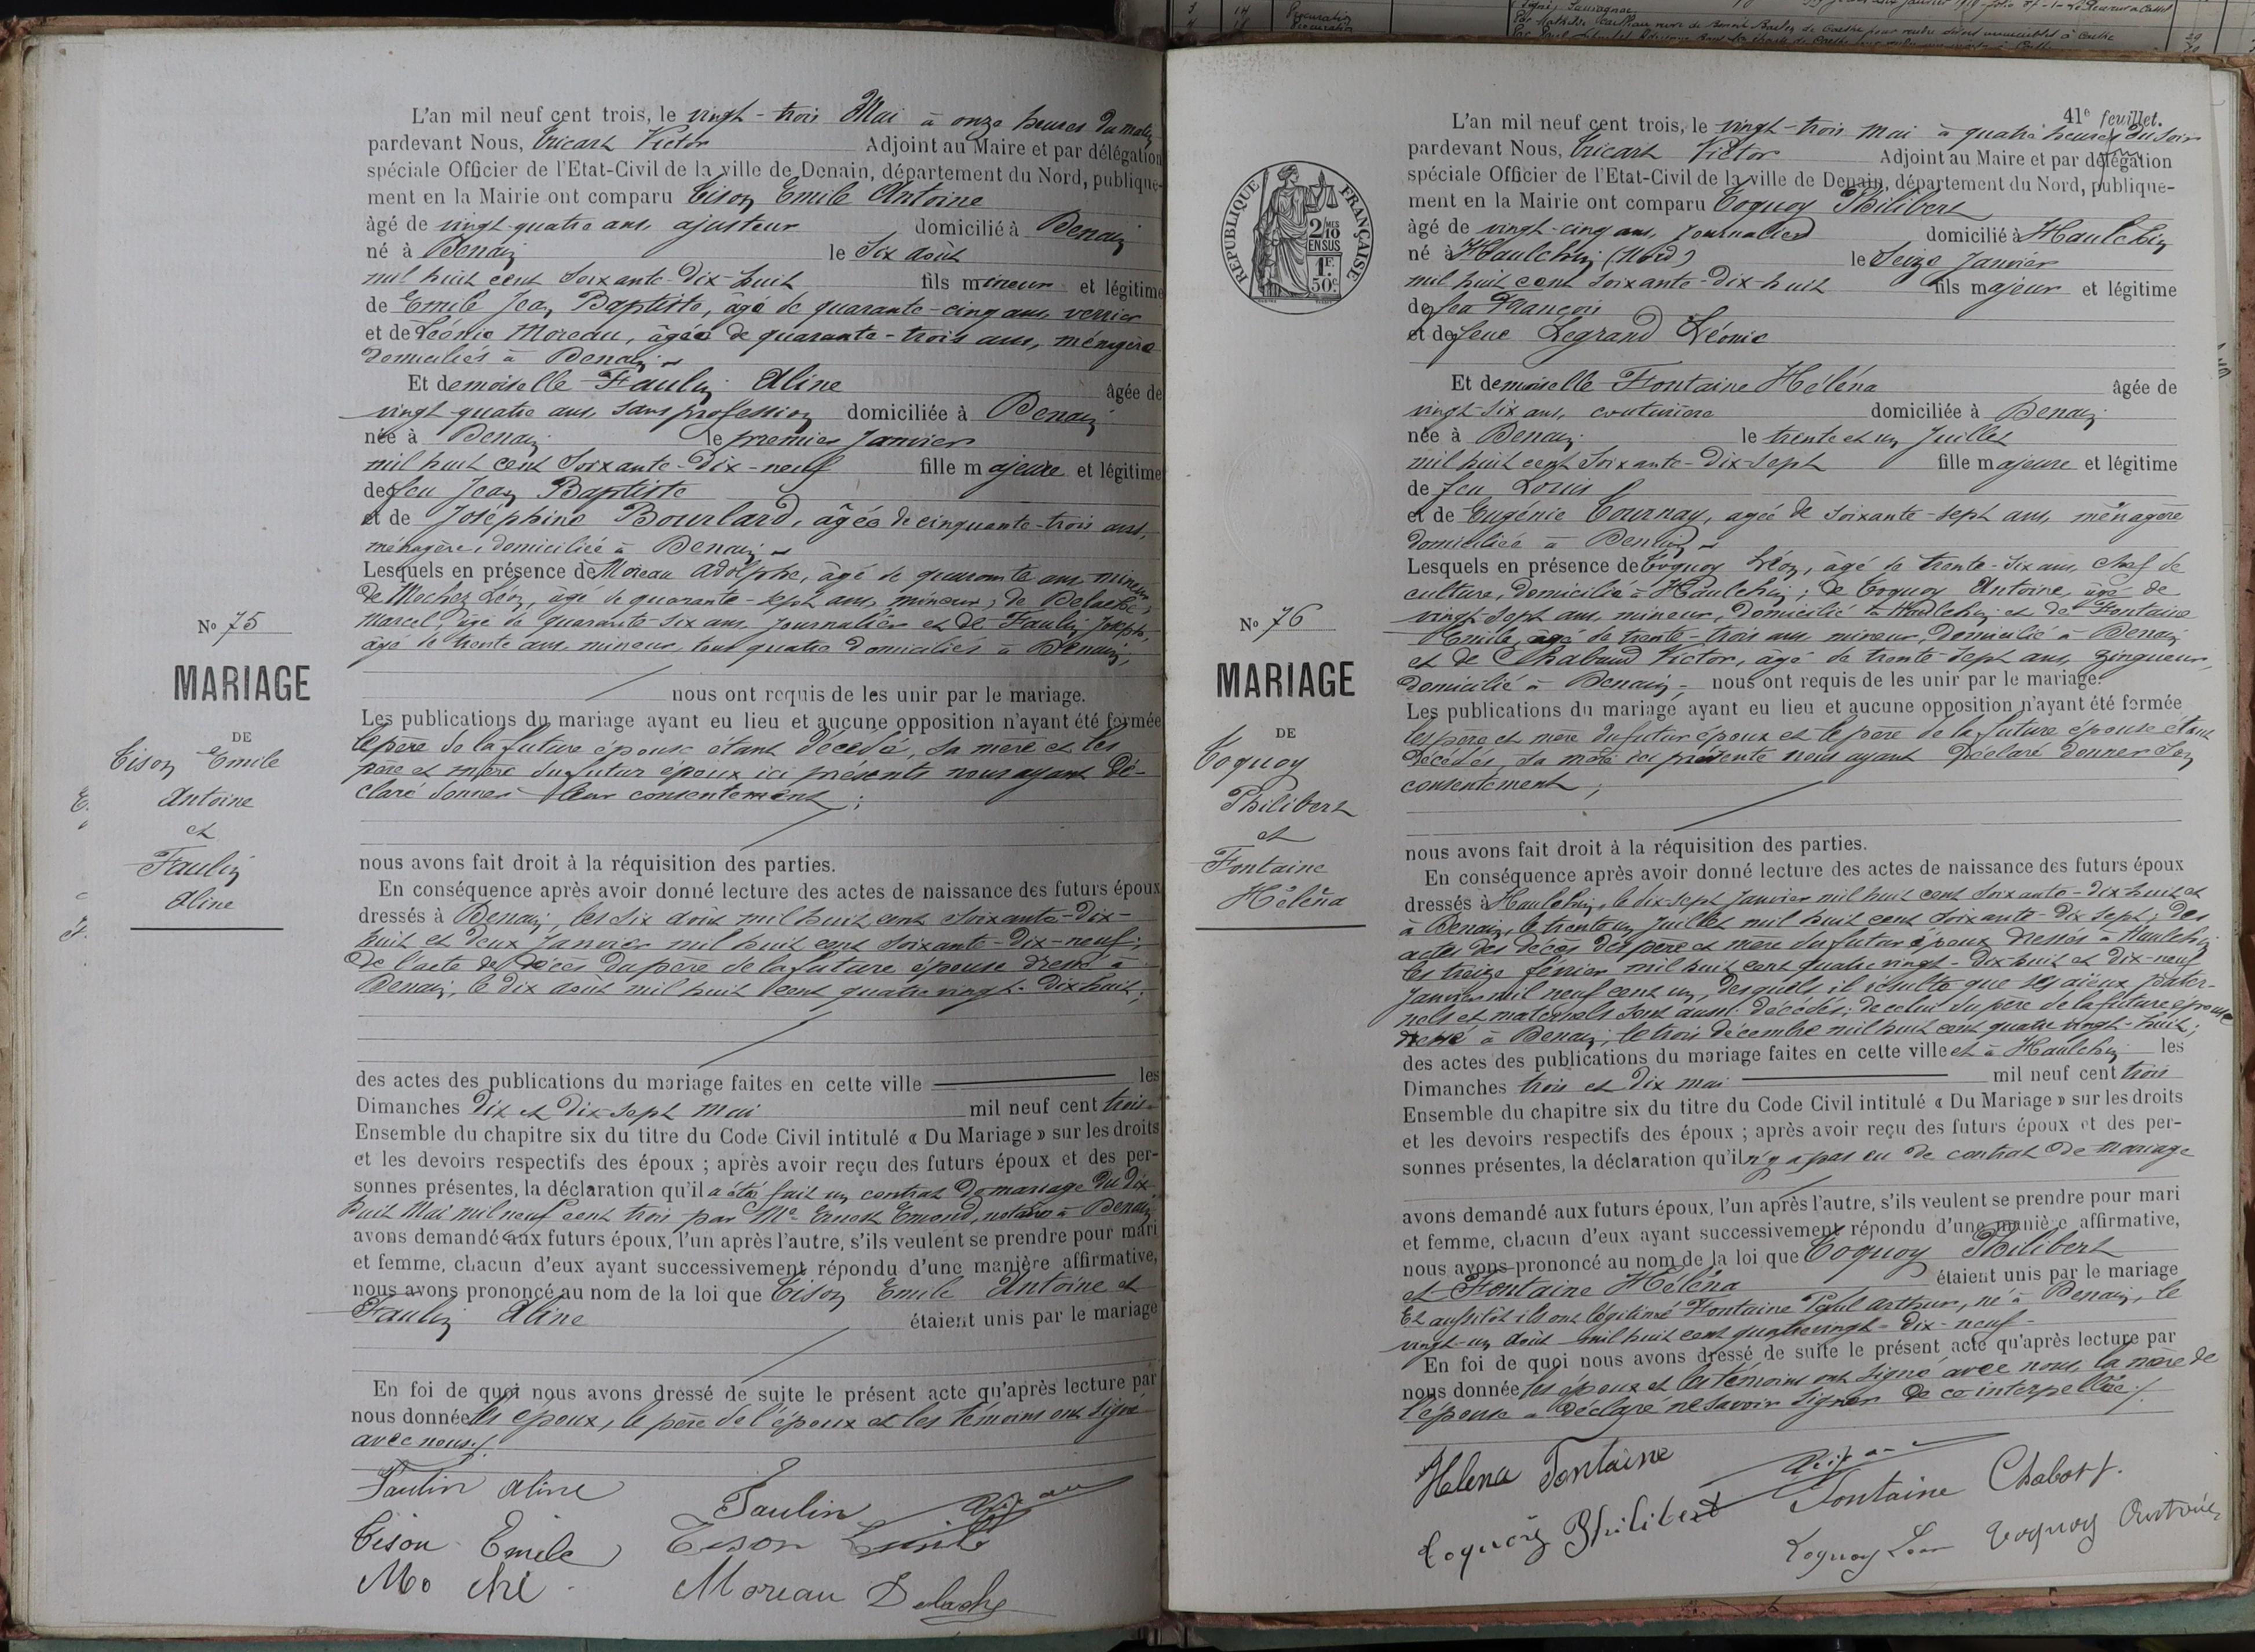 L'an mil neuf cent trois, le vingt-trois Mai à onze heures du matin
pardevant Nous, Tricart Victor Adjoint au Maire et par délégation
spéciale Officier de l'Etat-Civil de la ville de Denain, département du Nord, publique-
ment en la Mairie ont comparu Tison Emile Antoine
âgé de vingt-quatre ans, ajusteur domicilié à Denain
né à Denain le Six août
mil huit cent soixante-dix-huit fils mineur et légitime
de Emile Jean Baptiste, âgé de quarante-cinq ans, verrier
et de Léonie Moreau, âgée de quarante-trois ans, ménagère
domiciliés à Denain
Et demoiselle Faulin Aline âgée de
vingt-quatre ans, sans profession domiciliée à Denain
née à Denain le premier Janvier
mil huit cent soixante-dix-neuf fille majeure et légitime
de feu Jean Baptiste
et de Joséphine Bourlard, âgée de cinquante-trois ans,
ménagère, domiciliée à Denain
Lesquels en présence de Moreau Adolphe, âgé de quarante ans, mineur,
de Léon, âgé de quarante-sept ans, mineur, de
Marcel âgé de quarante-six ans, journalier et de Faulin Joseph,
âgé de trente ans, mineur, tous quatre domiciliés à Denain,
nous ont requis de les unir par le mariage.
Les publications du mariage ayant eu lieu et aucune opposition n'ayant été formée
le père de la future épouse étant décédé, sa mère et les
père et mère du futur époux ici présents nous ayant dé-
claré donner leur consentement;
nous avons fait droit à la réquisition des parties.
En conséquence après avoir donné lecture des actes de naissance des futurs époux
dressés à Denain, les six août mil huit cent soixante-dix-
huit et deux Janvier mil huit cent soixante-dix-neuf;
de l'acte de décès du père de la future épouse dressé à
Denain, le dix août mil huit cent quatre vingt-dix huit;
des actes des publications du mariage faites en cette ville les
Dimanches dix et dix-sept Mai mil neuf cent trois
Ensemble du chapitre six du titre du Code Civil intitulé « Du Mariage » sur les droits
et les devoirs respectifs des époux ; après avoir reçu des futurs époux et des per-
sonnes présentes, la déclaration qu'il a été fait un contrat de mariage du dix
huit Mai mil neuf cent trois par Me Ernest Emond, notaire à Denain
avons demandé aux futurs époux, l'un après l'autre, s'ils veulent se prendre pour mari
et femme, chacun d'eux ayant successivement répondu d'une manière affirmative,
nous avons prononcé au nom de la loi que Tison Emile Antoine et
Faulin Aline étaient unis par le mariage
En foi de quoi nous avons dressé de suite le présent acte qu'après lecture par
nous donnée les époux, le père de l'époux et les témoins ont signé
avec nous
No 75
MARIAGE
DE
Tison Emile
Antoine
et
Faulin
Aline
Faulin Aline
Faulin
Tison Emile
Tison Emile
Moreau
41e feuillet.
L'an mil neuf cent trois, le vingt-trois mai à quatre heures du soir
pardevant Nous, Tricart Victor Adjoint au Maire et par délégation
spéciale Officier de l'Etat-Civil de la ville de Denain, département du Nord, publique-
ment en la Mairie ont comparu Coquoy Philibert
âgé de vingt-cinq ans, journalier domicilié à Haulchin
né à Haulchin (Nord) le Seize Janvier
mil huit cent soixante-dix-huit fils majeur et légitime
de feu François
et de feue Legrand Léonie
Et demoiselle Fontaine Héléna âgée de
vingt-six ans, couturière domiciliée à Denain
née à Denain le trente et un Juillet
mil huit cent soixante-dix-sept fille majeure et légitime
de feu Louis
et de Eugénie Tournay, agée de soixante-sept ans, ménagère
domiciliée à Denain
Lesquels en présence de Coquoy Léon, âgé de trente-six ans, chef de
culture, domicilié à Haulchin; de Coquoy Antoine, âgé de
vingt-sept ans, mineur, domicilié à Haulchin et de Fontaine
Emile, âgé de trente-trois ans, mineur, domicilié à Denain
et de Chabaud Victor, âgé de trente-sept ans, zingueur,
domicilié à Denain, nous ont requis de les unir par le mariage.
Les publications du mariage ayant eu lieu et aucune opposition n'ayant été formée
les père et mère du futur époux et le père de la future épouse étant
décédés, sa mère ici présente nous ayant déclaré donner son
consentement;
nous avons fait droit à la réquisition des parties.
En conséquence après avoir donné lecture des actes de naissance des futurs époux
dressés à Haulchin, le dix-sept Janvier mil huit cent soixante-dix huit et
à Denain, le trente un Juillet mil huit cent soixante-dix sept; des
actes des décès des père et mère du futur époux dressés à Haulchin
les treize février mil huit cent quatre vingt-dix-huit et dix-neuf
Janvier mil neuf cent un, desquels il résulte que ses aïeux pater-
nels et maternels sont aussi décédés; de celui du père de la future épouse
dressé à Denain, le trois décembre mil huit cent quatre vingt-huit;
des actes des publications du mariage faites en cette ville et à Haulchin les
Dimanches trois et dix mai mil neuf cent trois
Ensemble du chapitre six du titre du Code Civil intitulé « Du Mariage » sur les droits
et les devoirs respectifs des époux ; après avoir reçu des futurs époux et des per-
sonnes présentes, la déclaration qu'il n'y a pas eu de contrat de mariage
avons demandé aux futurs époux, l'un après l'autre, s'ils veulent se prendre pour mari
et femme, chacun d'eux ayant successivement répondu d'une manière affirmative,
nous avons prononcé au nom de la loi que Coquoy Philibert
et Fontaine Héléna étaient unis par le mariage
Et aussitôt ils ont légitimé Fontaine Paul Arthur, né à Denain, le
vingt-un août mil huit cent quatre vingt-dix-neuf
En foi de quoi nous avons dressé de suite le présent acte qu'après lecture par
nous donnée les époux et les témoins ont signé avec nous, la mère de
l'épouse a déclaré ne savoir signer de ce interpellée
RÉPUBLIQUE FRANÇAISE
2/10 MES
EN SUS
1F.
50c.
No 76
MARIAGE
DE
Coquoy
Philibert
et
Fontaine
Héléna
Helena Fontaine
Fontaine Chabot
Coquoy Philibert
Coquoy Léon Coquoy Antoine